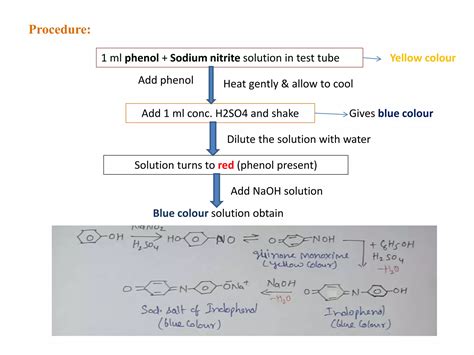 Procedure:
1 ml phenol + Sodium nitrite solution in test tube
Yellow colour
Add phenol
Heat gently & allow to cool
Add 1 ml conc. H2SO4 and shake
Gives blue colour
Dilute the solution with water
Solution turns to red (phenol present)
Add NaOH solution
Blue colour solution obtain
NaNO2
OH
H2SO4
HO
NO
O
NOH
+ C6H5-OH
H2SO4
-H2O
quinone monoxime
(yellow colour)
O
N
ONa+
NaOH
-H2O
O
N
OH
Sod. salt of Indophenol
(blue colour)
Indophenol
(blue colour)